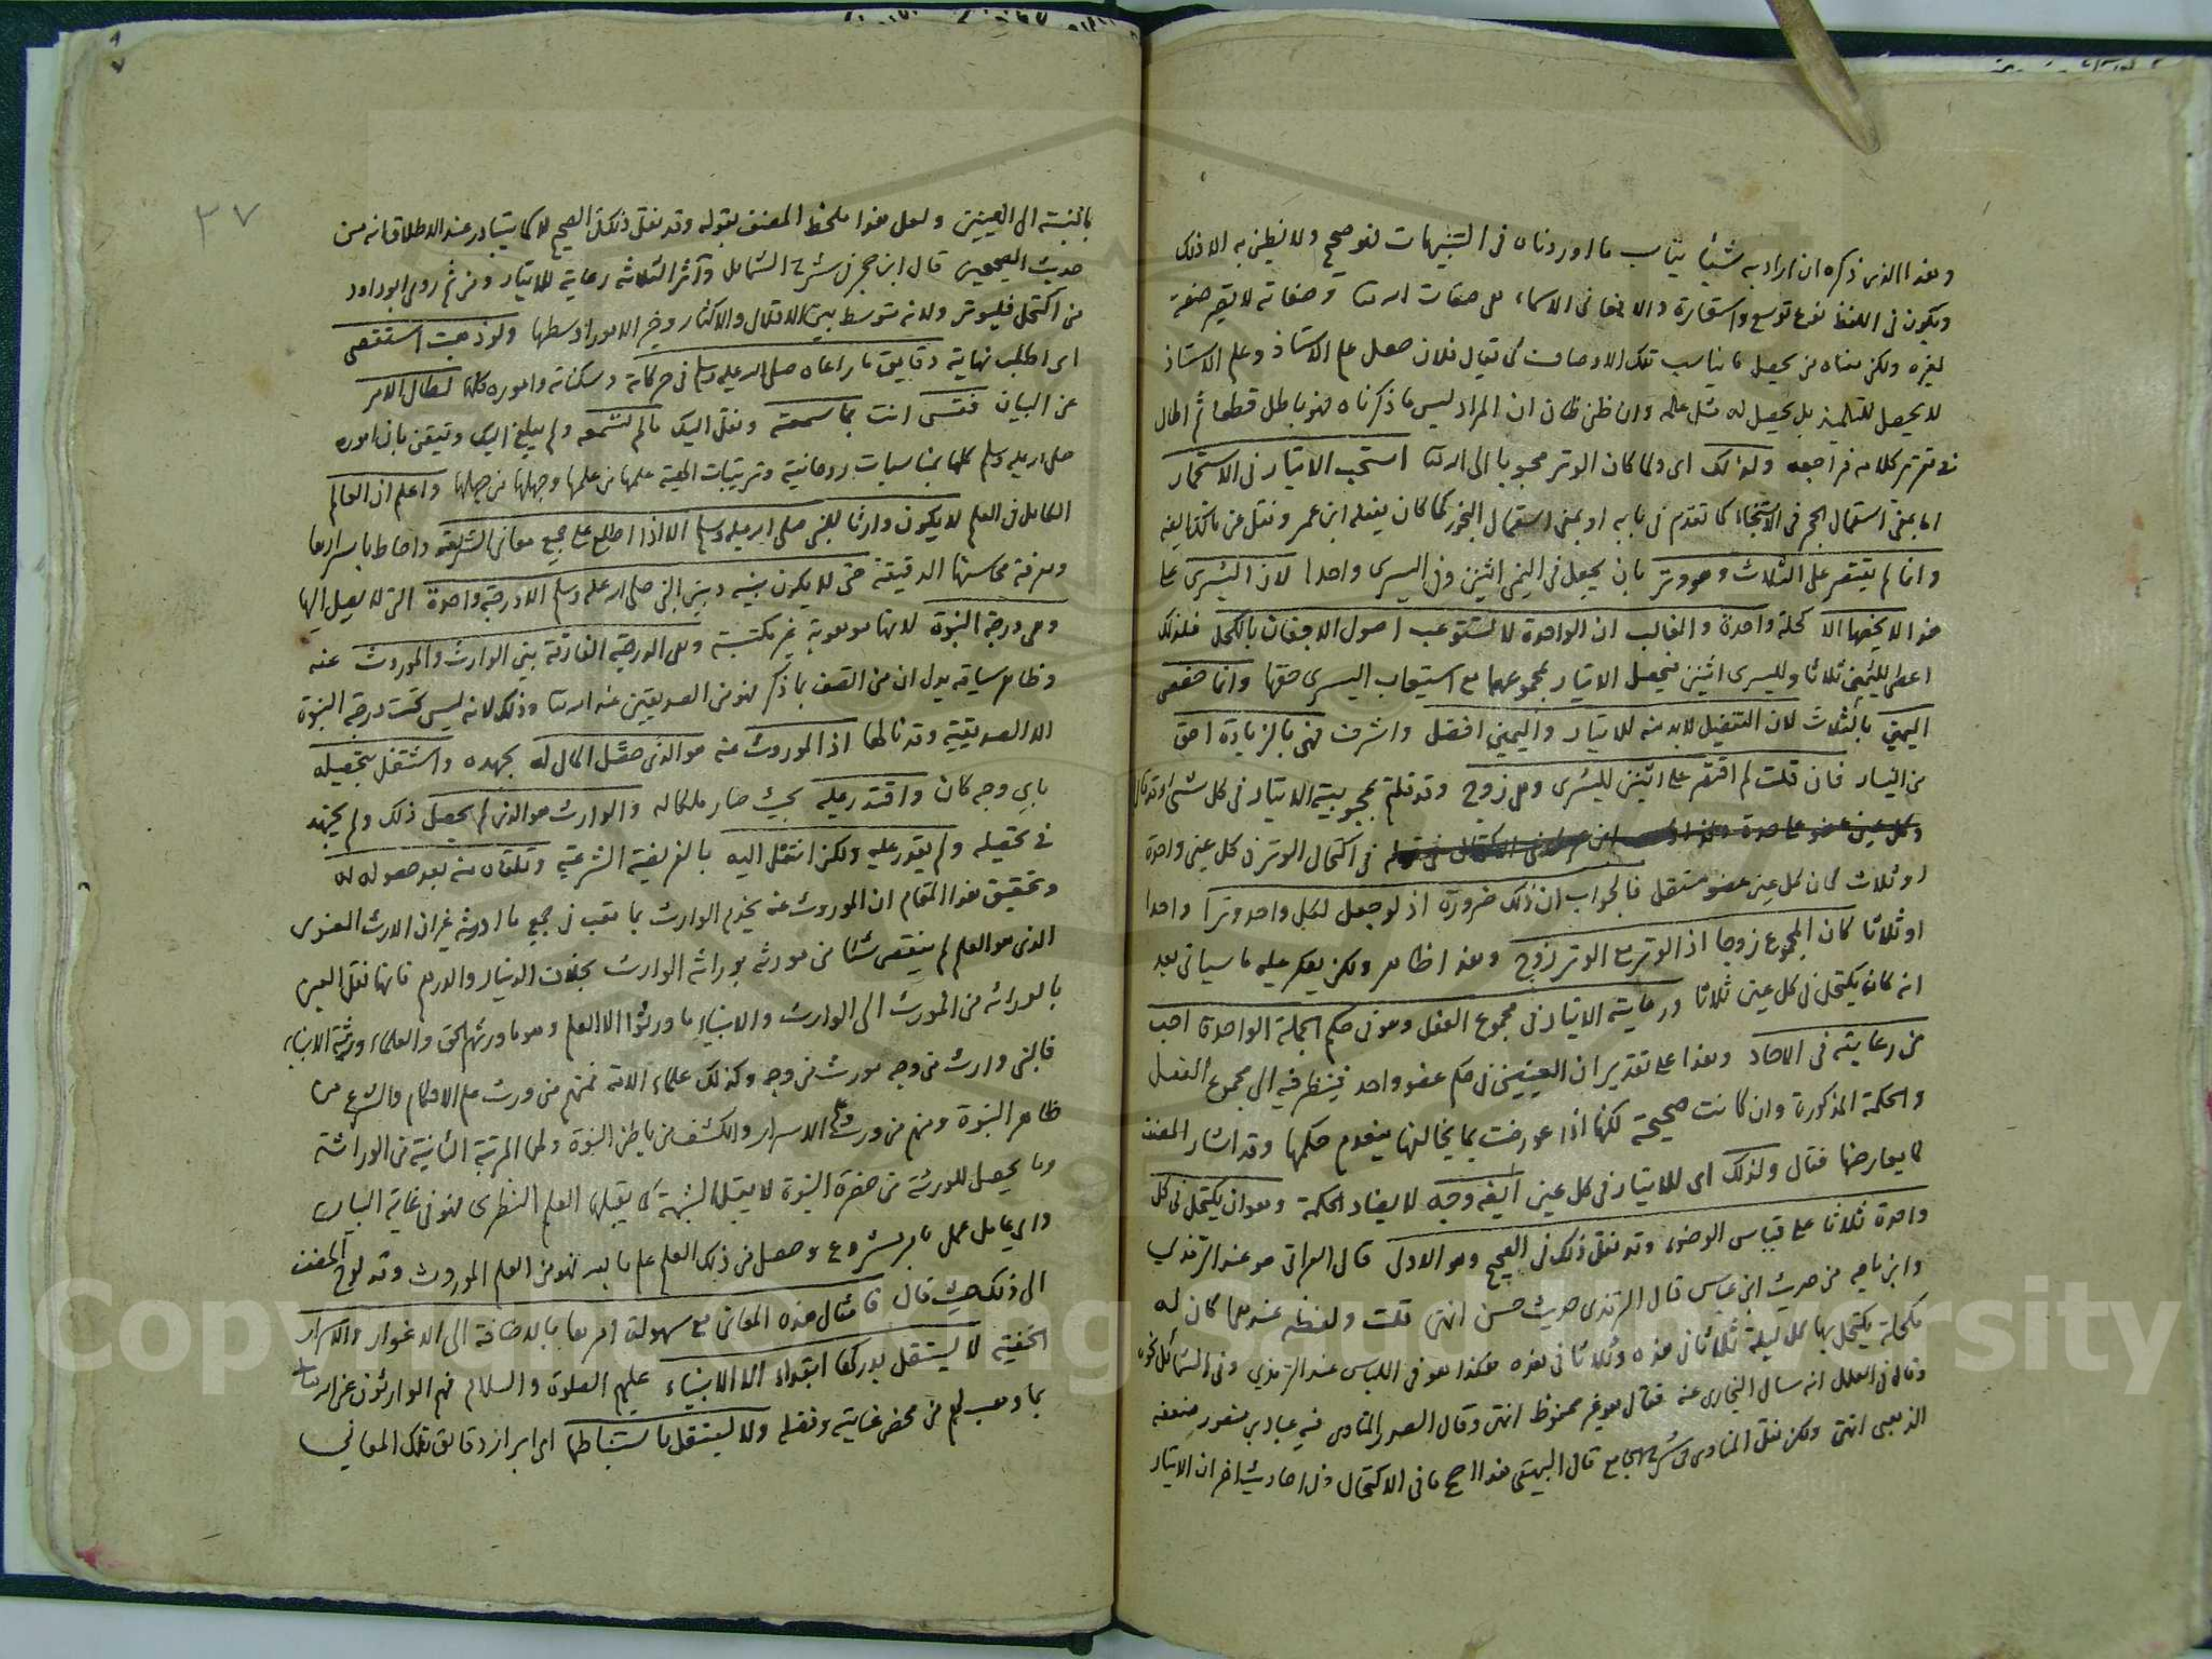 وهذا الذى ذكره ان اراد به شيئا يناسب ما اوردناه فى التنبيهات فهو صحيح ولا نظن به الا ذلك
ويكون فى اللفظ نوع توسع واستعارة والا فمعانى الاسماء هى صفات الله تعالى وصفاته لا تصير صفة
لغيره ولكن معناه من يحصل ما يناسب تلك الاوصاف كما يقال فلان حصل علم الاستاذ وعلم الاستاذ
لا يحصل للتلميذ بل يحصل له مثل علمه وان ظن ظان ان المراد ليس ما ذكرناه فهو باطل قطعا ثم اطال
فى تقرير كلامه فراجعه ولذلك اى ولما كان الوتر محبوبا الى الله تعالى استحب الايتار فى الاستجمار
اما بمعنى استعمال الحجر فى الاستنجاء كما تقدم فى بابه او بمعنى استعمال البخور كما كان يفعله ابن عمر ونقل عن مالك
وانما لم يقتصر على الثلاث وهو وتر بان يجعل فى اليمنى اثنين وفى اليسرى واحدا لان اليسرى على
هذا لا يخصها الا كحلة واحدة والغالب ان الواحدة لا تستوعب اصول الاجفان بالكحل فلذلك
اعطى لليمين ثلاثا ولليسرى اثنين فيحصل الايتار بمجموعهما مع استيعاب اليسرى حقها وانما خصص
اليمين بالثلاث لان التفضيل لابد منه للايتار واليمين افضل واشرف فهى بالزيادة احق
من اليسار فان قلت لم اقتصر على اثنين لليسرى وهى زوج وقد قلتم بمحبوبية الايتار فى كل شئ
فى اكتحال الوتر فى كل عين واحدة
او ثلاث لان كل عين عضو مستقل فالجواب ان ذلك ضرورة اذ لو جعل لكل واحد وترا واحدا
او ثلاثا كان المجموع زوجا اذ الوتر مع الوتر زوج وهذا ظاهر ولكن يعكر عليه ما سياتى بعد
انه كان يكتحل فى كل عين ثلاثا ورعاية الايتار فى مجموع الفعل وهو فى حكم الجملة الواحدة احب
من رعايته فى الاحاد وهذا على تقدير ان العينين فى حكم عضو واحد فينظر فيه الى مجموع الفعل
والحكمة المذكورة وان كانت صحيحة لكنها اذا عورضت بما يخالفها ينعدم حكمها وقد اشار المصنف
لما يعارضها فقال ولذلك اى للايتار فى كل عين ايضه وجه لا يضاد الحكمة وهو ان يكتحل فى كل
واحدة ثلاثا على قياس الوضوء وقد نقل ذلك فى الصحيح وهو الاولى قال العراقى هو عند الترمذي
وابن ماجه من حديث ابن عباس قال الترمذى حديث حسن انتهى قلت ولفظه عندهما كان له
مكحلة يكتحل بها كل ليلة ثلاثا فى هذه وثلاثا فى هذه هكذا هو فى اللباس عند الترمذي وفى الشمائل نحوه
وقال فى العلل انه سال البخارى عنه فقال هو غير محفوظ انتهى وقال الصدر المناوى فيه عباد بن منصور ضعفه
الذهبى انتهى ولكن نقل المناوى فى شرح الجامع قال البيهقى هذا اصح ما فى الاكتحال وفى احاديث اخر ان الايتار
٣٧
بالنسبة الى العينين ولعل هذا ملحظ المصنف بقوله وقد نقل ذلك فى الصحيح لا كما يتبادر عند الاطلاق انه من
حديث الصحيحين قال ابن حجر فى شرح الشمائل وآثر الثلاثة رعاية للايتار ومن ثم روى ابو داود
من اكتحل فليوتر ولانه متوسط بين الاقلال والاكثار وخير الامور اوسطها ولو ذهبت استقصى
اى اطلب نهاية دقايق ما راعاه صلى الله عليه وسلم فى حركاته وسكناته واموره كلها لطال الامر
عن البيان فقس انت بما سمعته ونقل اليك ما لم تسمعه ولم يبلغ اليك وتيقن بان اموره
صلى الله عليه وسلم كلها بمناسبات روحانية وترتيبات الهية علمها من علمها وجهلها من جهلها واعلم ان العالم
الكامل فى العلم لا يكون وارثا للنبى صلى الله عليه وسلم الا اذا اطلع على جميع معانى الشريعة واحاط باسرارها
ومعرفة محاسنها الدقيقة حتى لا يكون بينه وبين النبى صلى الله عليه وسلم الا درجة واحدة التى لا يصل اليها
وهى درجة النبوة لانها موهوبة غير مكتسبة وهى الدرجة الفارقة بين الوارث والموروث عنه
وظاهر سياقه يدل ان من اتصف بما ذكر فهو من الصديقين عند الله تعالى وذلك لانه ليس تحت درجة النبوة
الا الصديقية وقد نالها اذ الموروث عنه هو الذى حصل المال له بجهده واشتغل بتحصيله
باى وجه كان واقتدر عليه بحيث صار ملكا له والوارث هو الذى لم يحصل ذلك ولم يجتهد
فى تحصيله ولم يقدر عليه ولكن انتقل اليه بالفريضة الشرعية وتلقاه منه بعد حصوله له
وتحقيق هذا المقام ان الموروث عنه يخدم الوارث بما تعب فى جمع ما اورثه غير ان الارث المعنوى
الذى هو العلم لم ينقص شيئا من مورثه بوراثة الوارث بخلاف الدينار والدرهم فانها نقل العين
بالوراثة من المورث الى الوارث والانبياء ما ورثوا الا العلم وهو ما ورثهم الحق والعلماء ورثة الانبياء
فالنبى وارث من وجه مورث من وجه وكذلك علماء الامة فمنهم من ورث علم الاحكام والشرع من
ظاهر النبوة ومنهم من ورث علم الاسرار والكشف من باطن النبوة ولها المرتبة الثانية من الوراثة
وما يحصل للورثة من حضرة النبوة لا يقبل الشبهة كما يقبلها العلم النظرى فهو فى غاية البيان
واى عامل عمل بامر مشروع وحصل من ذلك العلم علم بالله فهو من العلم الموروث وقد لوح المصنف
الى ذلك حيث قال فامثال هذه المعانى مع سهولة امرها بالاضافة الى الاغوار والاسرار
الخفية لا يستقل بدركها ابتداء الا الانبياء عليهم الصلوة والسلام فهم الوارثون عن الله تعالى
بما وهب لهم من محض عنايته وفضله ولا يستقل باستنباطها اى ابراز دقايق تلك المعاني
Copyright © King Saud University